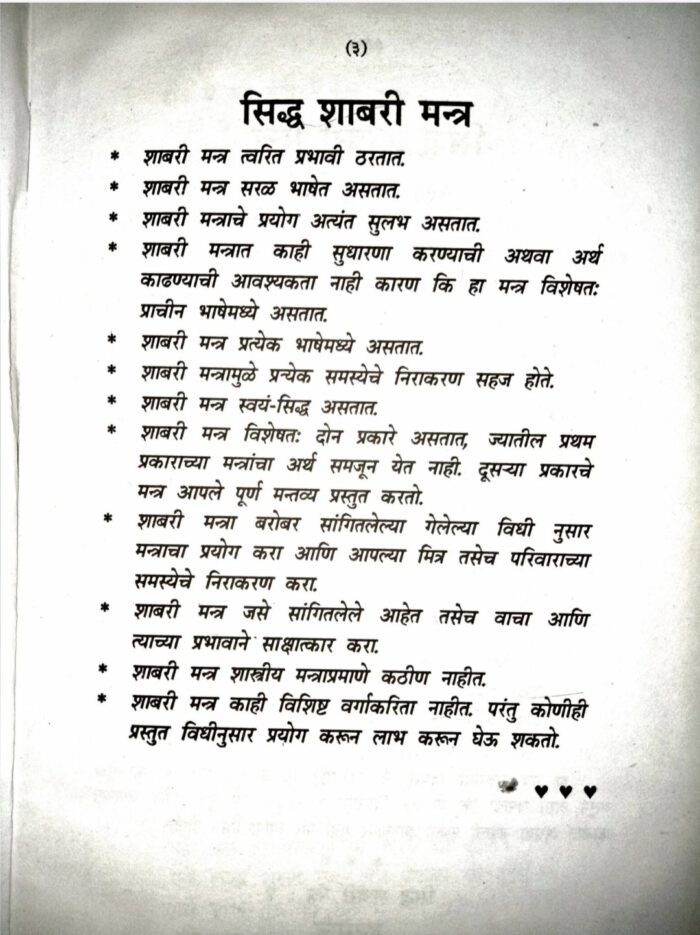 (३)
सिद्ध शाबरी मन्त्र
* शाबरी मन्त्र त्वरित प्रभावी ठरतात.
* शाबरी मन्त्र सरळ भाषेत असतात.
* शाबरी मन्त्राचे प्रयोग अत्यंत सुलभ असतात.
* शाबरी मन्त्रात काही सुधारणा करण्याची अथवा अर्थ
काढण्याची आवश्यकता नाही कारण कि हा मन्त्र विशेषतः
प्राचीन भाषेमध्ये असतात.
* शाबरी मन्त्र प्रत्येक भाषेमध्ये असतात.
* शाबरी मन्त्रामुळे प्रन्येक समस्येचे निराकरण सहज होते.
* शाबरी मन्त्र स्वयं-सिद्ध असतात.
* शाबरी मन्त्र विशेषतः दोन प्रकारे असतात, ज्यातील प्रथम
प्रकाराच्या मन्त्रांचा अर्थ समजून येत नाही. दूसऱ्या प्रकारचे
मन्त्र आपले पूर्ण मन्तव्य प्रस्तुत करतो.
* शाबरी मन्त्रा बरोबर सांगितलेल्या गेलेल्या विधी नुसार
मन्त्राचा प्रयोग करा आणि आपल्या मित्र तसेच परिवाराच्या
समस्येचे निराकरण करा.
* शाबरी मन्त्र जसे सांगितलेले आहेत तसेच वाचा आणि
त्याच्या प्रभावाने साक्षात्कार करा.
* शाबरी मन्त्र शास्त्रीय मन्त्राप्रमाणे कठीण नाहीत.
* शाबरी मन्त्र काही विशिष्ट वर्गाकरिता नाहीत. परंतु कोणीही
प्रस्तुत विधीनुसार प्रयोग करून लाभ करून घेऊ शकतो.
♥ ♥ ♥